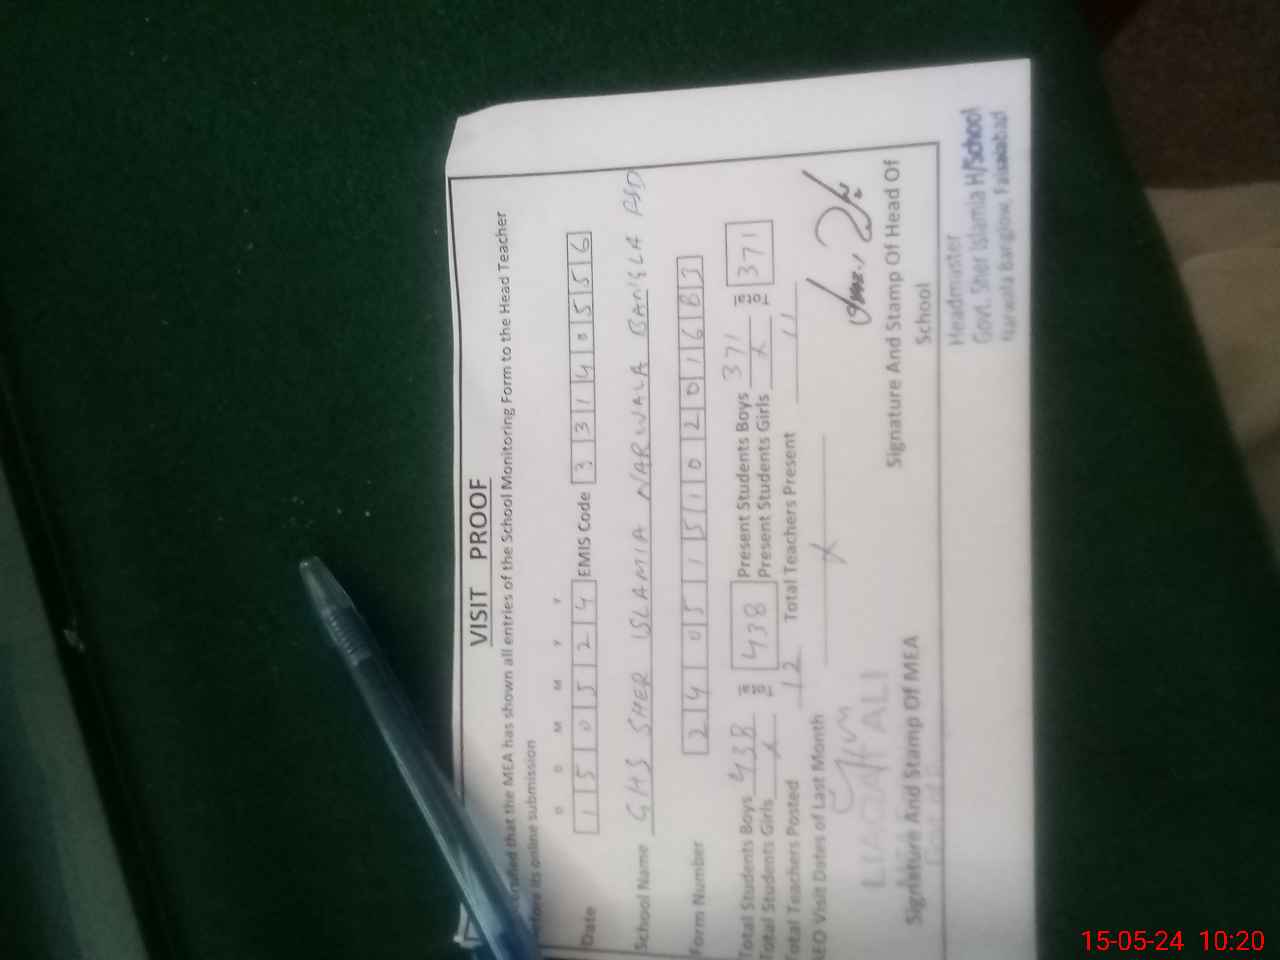 VISIT PROOF
that the MEA has shown all entries of the School Monitoring Form to the Head Teacher
its online submission
D D M M Y Y
Date 1 5 0 5 2 4 EMIS Code 3 3 1 4 0 5 5 6
School Name GHS SHER ISLAMIA NARWALA BANGLA FSD
Form Number 2 4 0 5 1 5 1 0 2 0 1 6 8 3
Total Students Boys 438 438 Present Students Boys 371 371
Total Students Girls x Present Students Girls x
Total Teachers Posted 12 Total Teachers Present 11
AEO Visit Dates of Last Month x
LIAQAT ALI
Signature And Stamp Of MEA
Signature And Stamp Of Head Of
School
Headmaster
Govt. Sher Islamia H/School
Narwala Banglow, Faisalabad
15-05-24 10:20